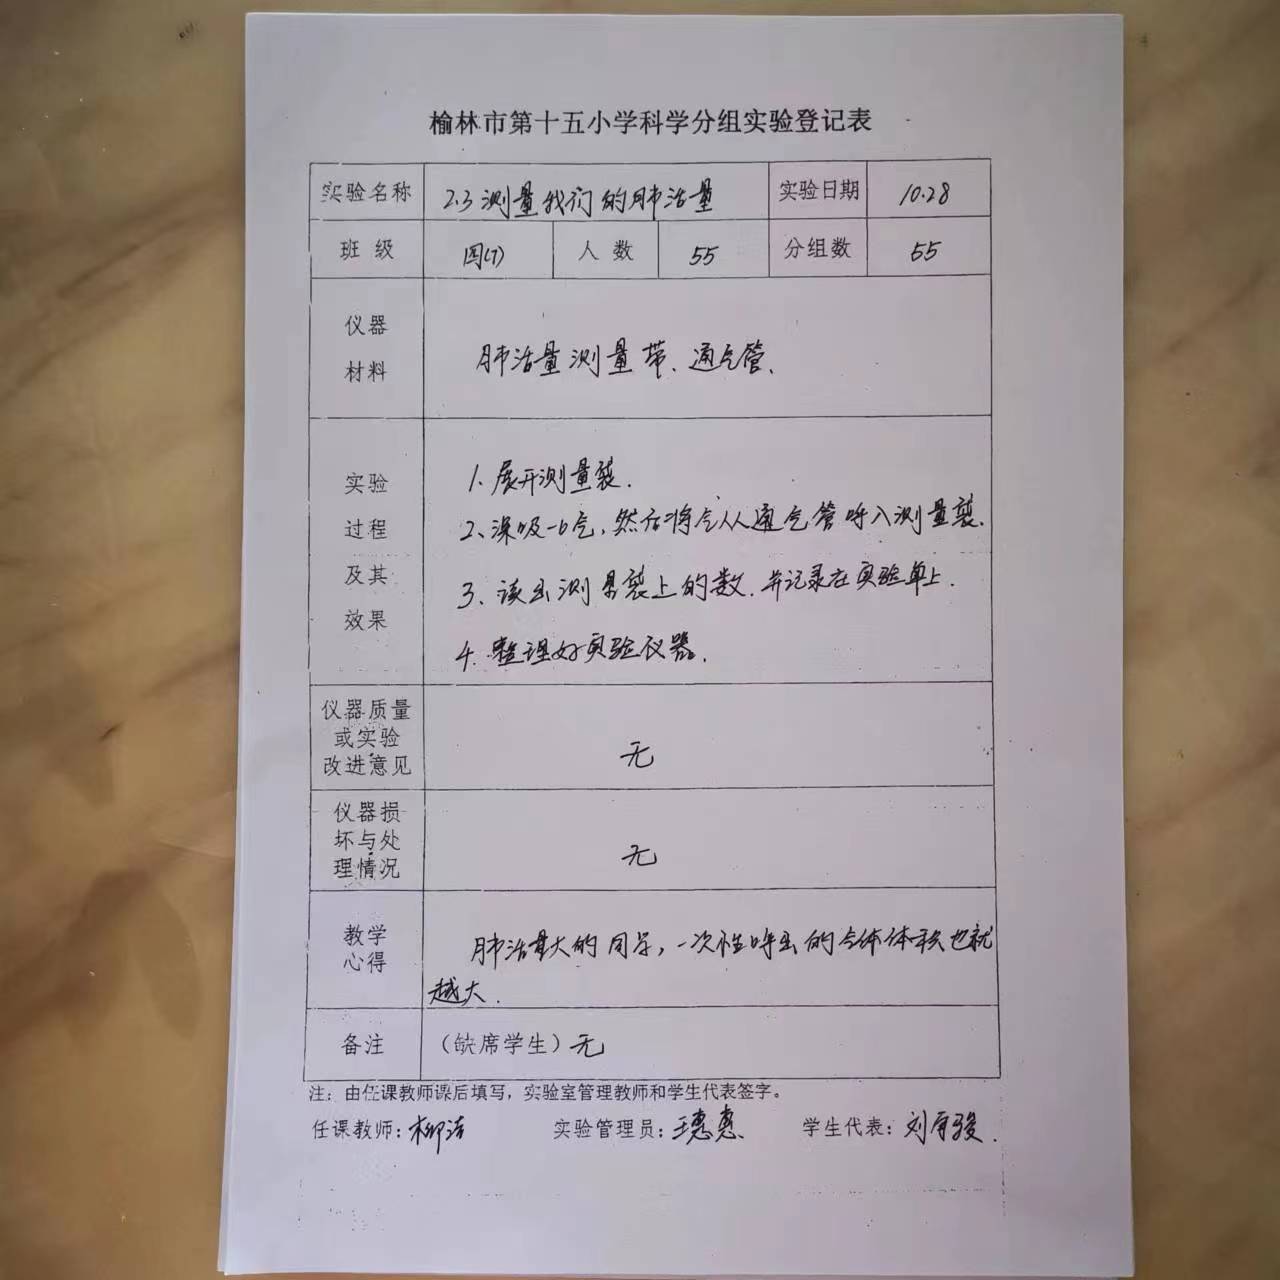 榆林市第十五小学科学分组实验登记表
实验名称 2.3 测量我们的肺活量 实验日期 10.28
班 级 四(7) 人 数 55 分组数 55
仪器
材料
肺活量测量带、通气管、
实验
过程
及其
效果
1. 展开测量袋.
2、深吸一口气, 然后将气从通气管呼入测量袋.
3、读出测量袋上的数. 并记录在实验单上.
4. 整理好实验仪器.
仪器质量
或实验
改进意见
无
仪器损
坏与处
理情况
无
教学
心得
肺活量大的同学, 一次性呼出的气体体积也就
越大.
备注 (缺席学生) 无
注: 由任课教师课后填写, 实验室管理教师和学生代表签字。
任课教师: 柳洁 实验管理员: 王惠惠 学生代表: 刘